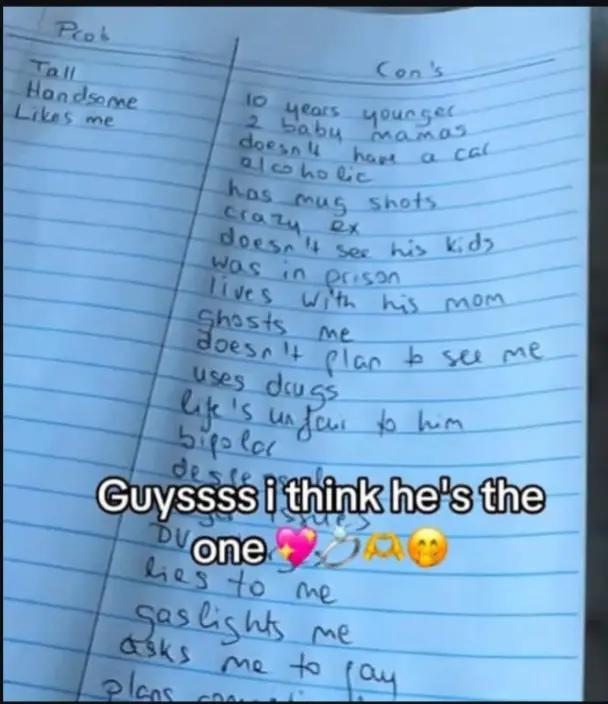 Pros
Tall
Handsome
Likes me
Con's
10 years younger
2 baby mamas
doesn't have a car
alcoholic
has mug shots
crazy ex
doesn't see his kids
was in prison
lives with his mom
ghosts me
doesn't plan to see me
uses drugs
life's unfair to him
bipolar
issues
DV
lies to me
gaslights me
asks me to pay
plans
Guyssss i think he's the
one 💖💍🫶🤭